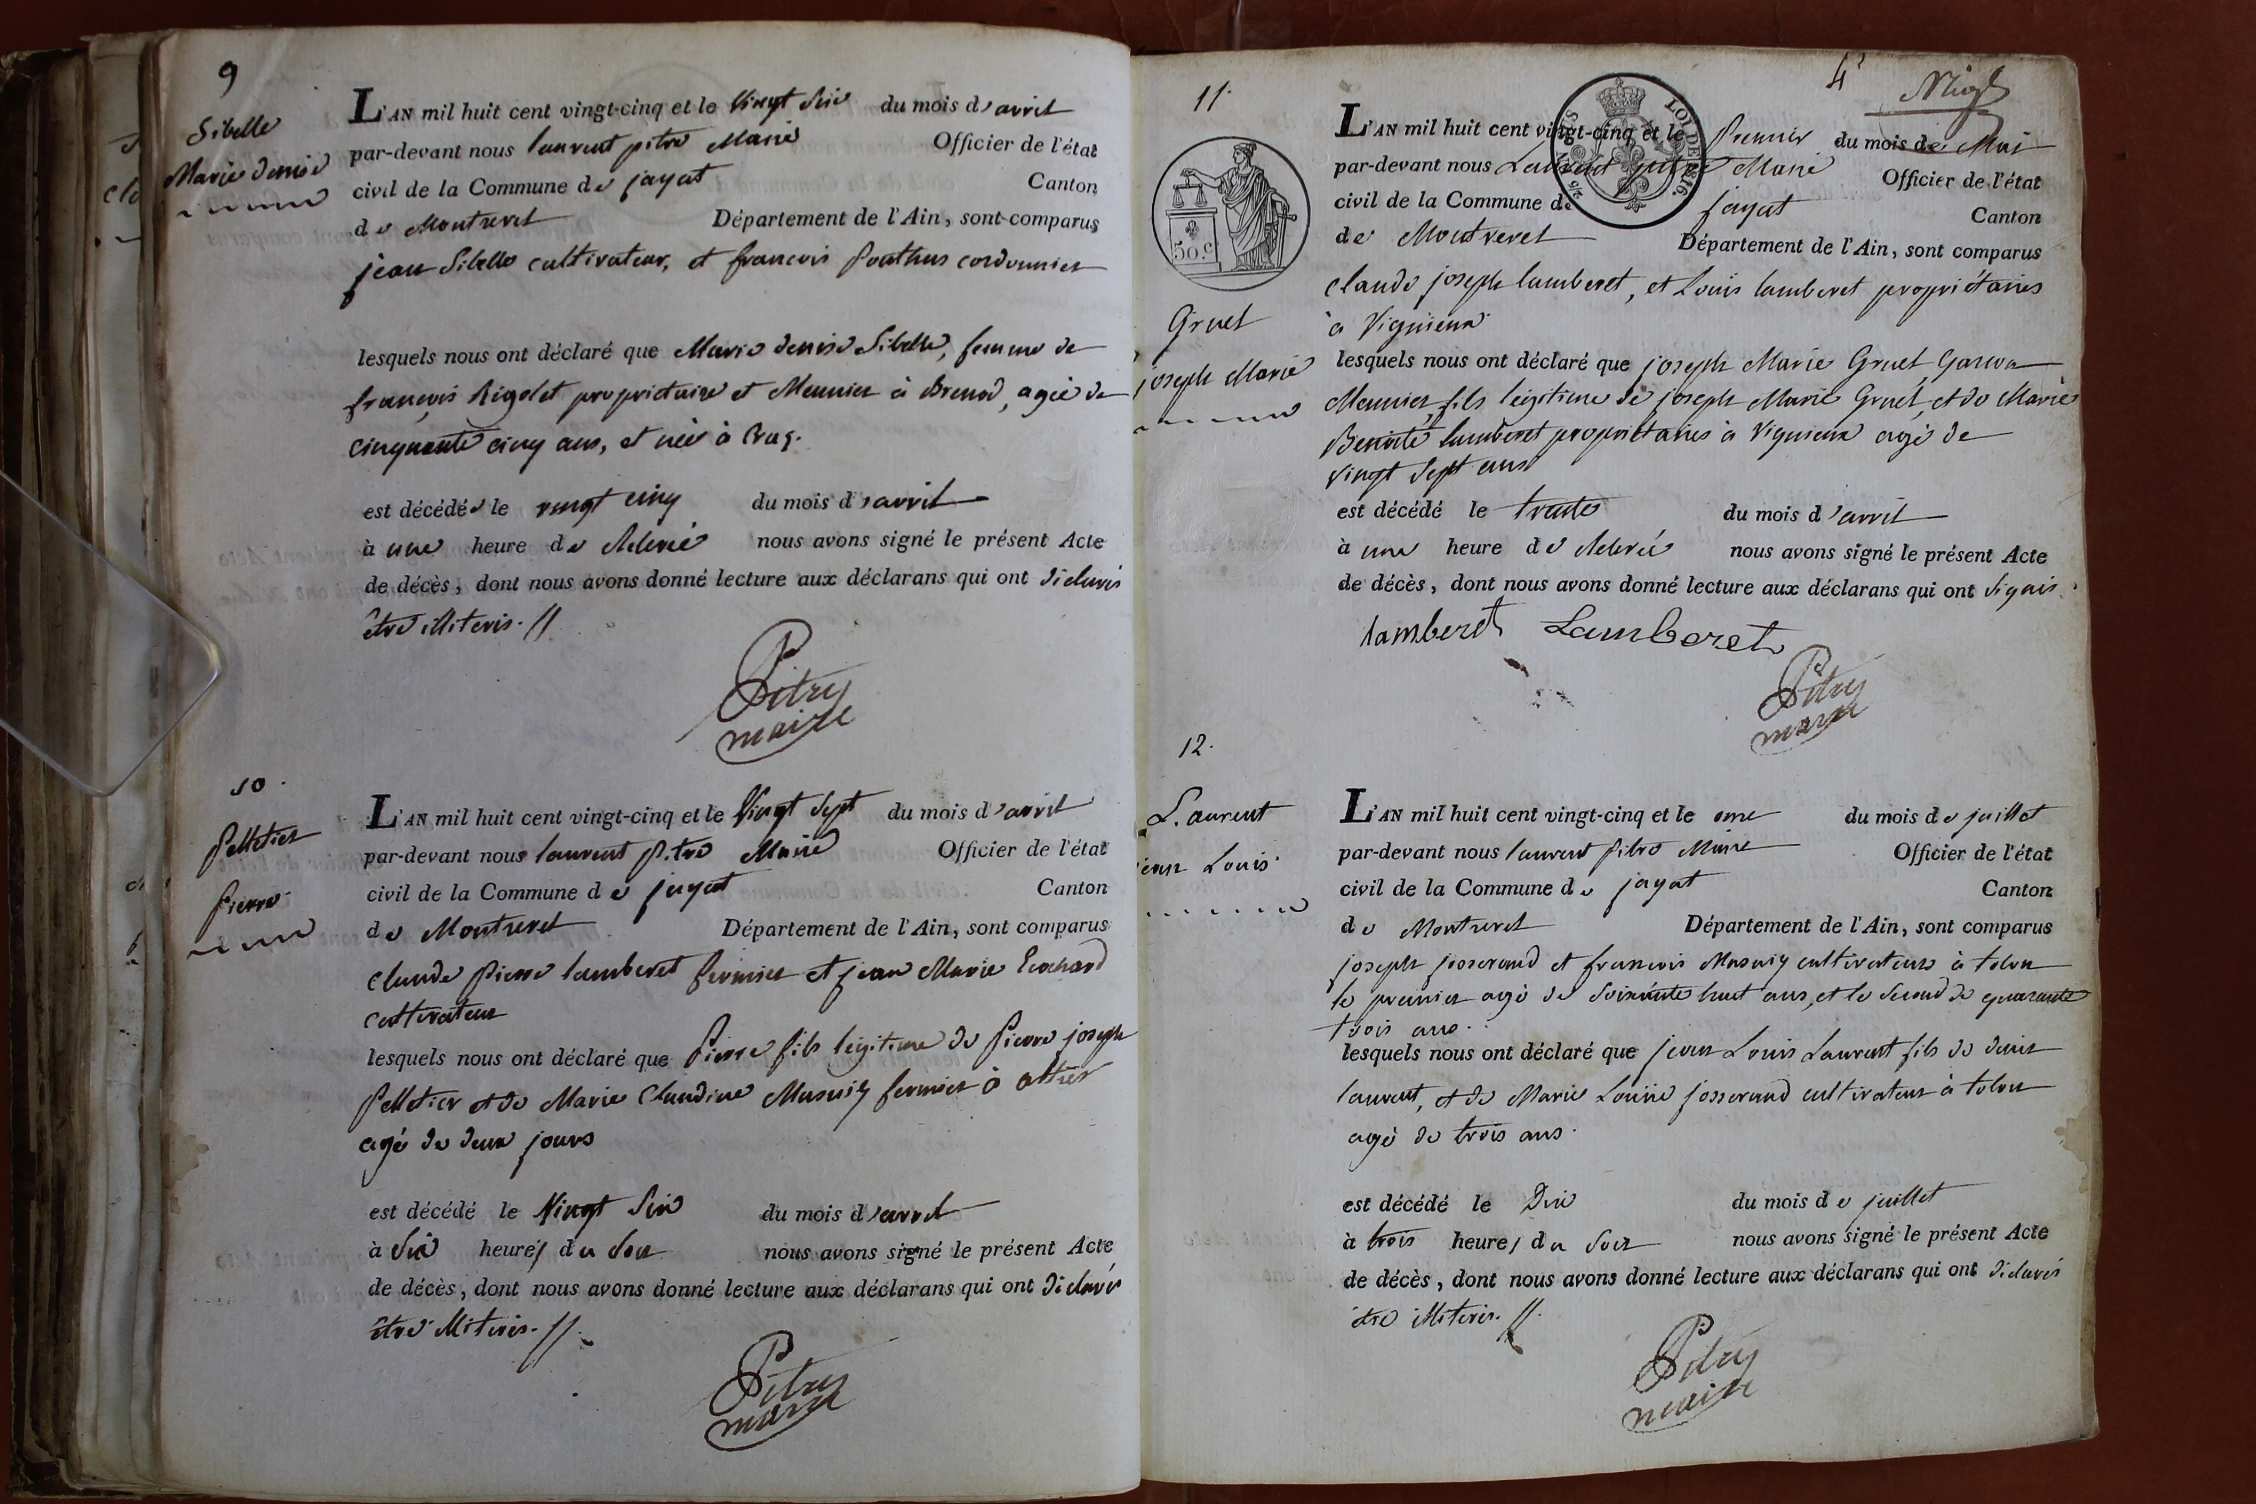 9
Sibelle
Marie denise
L'AN mil huit cent vingt-cinq et le vingt Six du mois d'avril
par-devant nous laurent pitre Maire Officier de l'état
civil de la Commune de jayat Canton
de Montrevel Département de l'Ain, sont comparus
jean Sibelle cultivateur, et francois Ponthus cordonnier
lesquels nous ont déclaré que Marie denise Sibelle, femme de
françois Rigolet propriétaire et Meunier à Brenod, agée de
cinquante cinq ans, et née à Cras.
est décédée le vingt cinq du mois d'avril
à une heure de Relevée nous avons signé le présent Acte
de décès, dont nous avons donné lecture aux déclarans qui ont déclarés
être illiteris.
Pitre
maire
10.
Pelletier
Pierre
L'AN mil huit cent vingt-cinq et le Vingt Sept du mois d'avril
par-devant nous laurent Pitre Maire Officier de l'état
civil de la Commune de jayat Canton
de Montrevel Département de l'Ain, sont comparus
claude Pierre lamberet fermier et jean Marie
cultivateur
lesquels nous ont déclaré que Pierre fils légitime de Pierre joseph
Pelletier et de Marie Claudine Masuiy fermier à
agé de deux jours
est décédé le Vingt Six du mois d'avril
à Six heures du Soir nous avons signé le présent Acte
de décès, dont nous avons donné lecture aux déclarans qui ont déclarés
être illiteris.
Pitre
maire
4e
11.
50 c
LOI DE 1816.
Gruel
joseph Marie
L'AN mil huit cent vingt-cinq et le Premier du mois de Mai
par-devant nous Laurent pitre Maire Officier de l'état
civil de la Commune de jayat Canton
de Montrevel Département de l'Ain, sont comparus
claude joseph lamberet, et Louis lamberet propriétaires
à Vignieux
lesquels nous ont déclaré que joseph Marie Gruel Garcon
Meunier fils légitime de joseph Marie Gruel, et de Marie
Benoite lamberet propriétaires à Vignieux agé de
vingt Sept ans
est décédé le trente du mois d'avril
à une heure de Relevée nous avons signé le présent Acte
de décès, dont nous avons donné lecture aux déclarans qui ont signés.
lamberet Lamberet
Pitre
maire
12.
Laurent
jean Louis
L'AN mil huit cent vingt-cinq et le onze du mois de juillet
par-devant nous laurent Pitre Maire Officier de l'état
civil de la Commune de jayat Canton
de Montrevel Département de l'Ain, sont comparus
joseph josserand et francois Masuiy cultivateurs à tolon
le premier agé de soixante huit ans, et le Second de quarante
trois ans.
lesquels nous ont déclaré que jean Louis Laurent fils de denis
laurent, et de Marie Louise josserand cultivateur à tolon
agé de trois ans.
est décédé le Dix du mois de juillet
à trois heures du Soir nous avons signé le présent Acte
de décès, dont nous avons donné lecture aux déclarans qui ont déclarés
être illiteris.
Pitre
maire